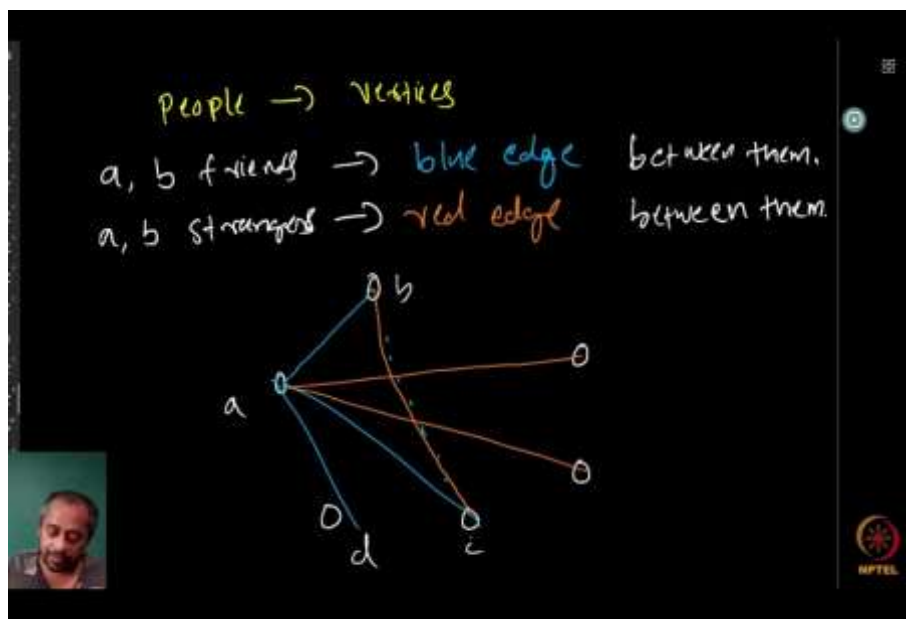 People → vertices
a, b friends → blue edge between them.
a, b strangers → red edge between them.
b
a
d
c
NPTEL